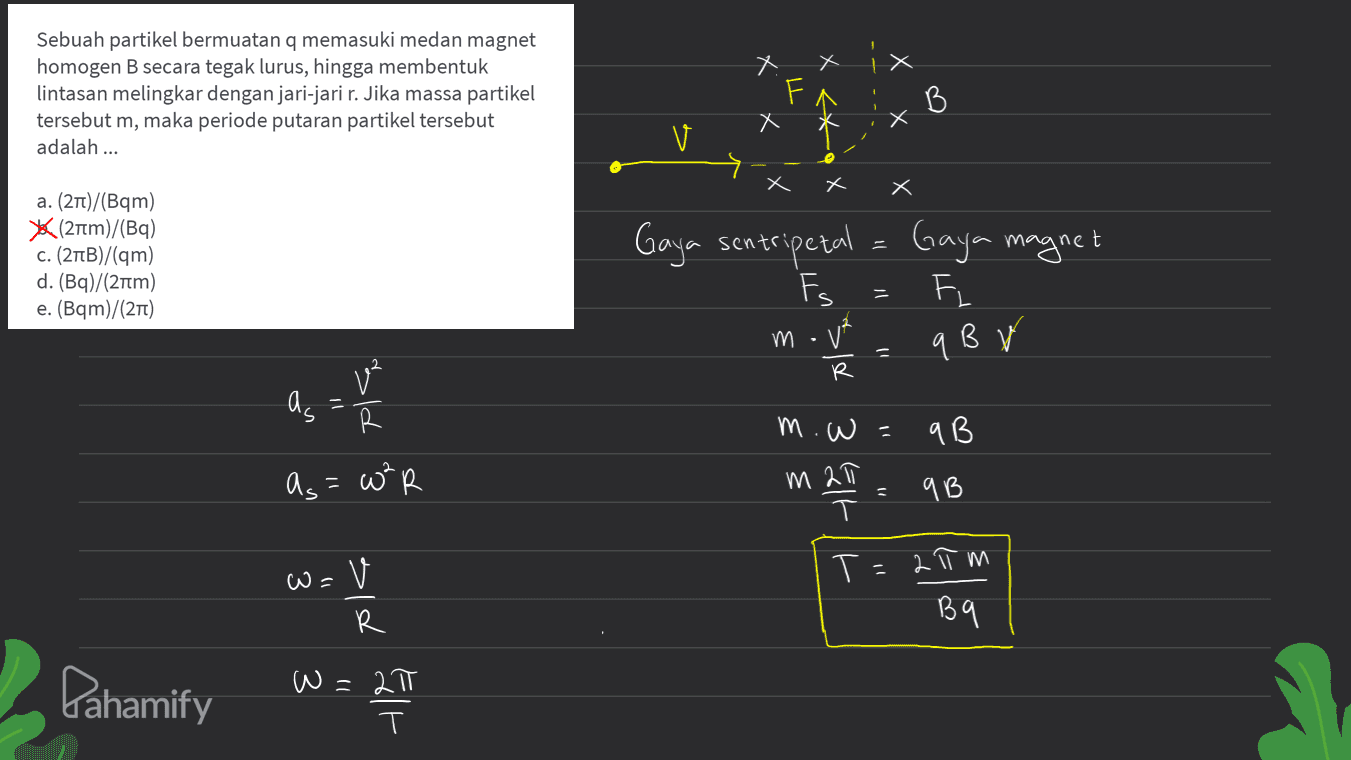 Sebuah partikel bermuatan q memasuki medan magnet
homogen B secara tegak lurus, hingga membentuk
lintasan melingkar dengan jari-jari r. Jika massa partikel
tersebut m, maka periode putaran partikel tersebut
adalah ...
a. (2π)/(Bqm)
b. (2πm)/(Bq)
c. (2πB)/(qm)
d. (Bq)/(2πm)
e. (Bqm)/(2π)
x x x
F
B
x x x
V
x x x
Gaya sentripetal = Gaya magnet
Fs = FL
m . V²/R = qBV
m . ω = qB
m 2π/T = qB
T = 2πm/Bq
as = V²/R
as = ω²R
ω = V/R
ω = 2π/T
Pahamify